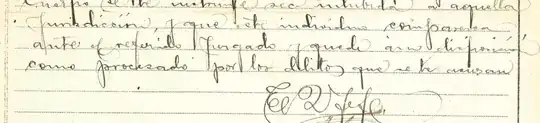 se le instruye sea inhibida a aquella
Jurisdicción, y que este individuo comparezca
ante el referido Juzgado y quede a su disposición
como procesado por los delitos que se le acusan
El